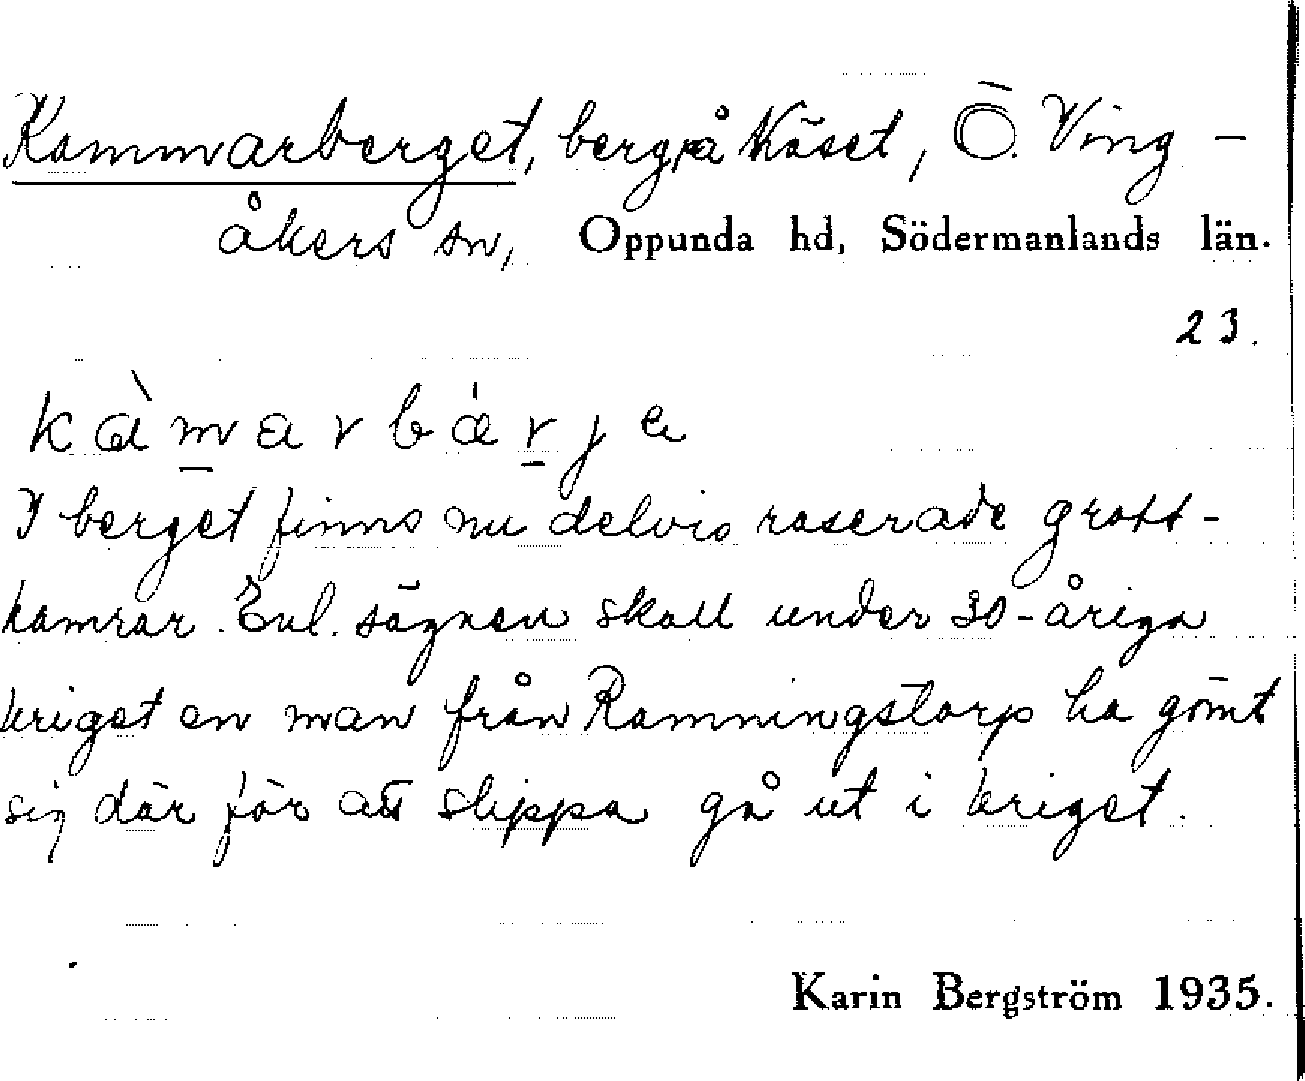 Kammarberget, berg på Käset, Ö. Ving-
åkers sn, Oppunda hd, Södermanlands län.
23.
kàmarbárje
I berget finns nu delvis raserade grott-
kamrar. Enl. sägnen skall under 30-åriga
kriget en man från Ramningstorp ha gömt
sig där för att slippa gå ut i kriget.
Karin Bergström 1935.